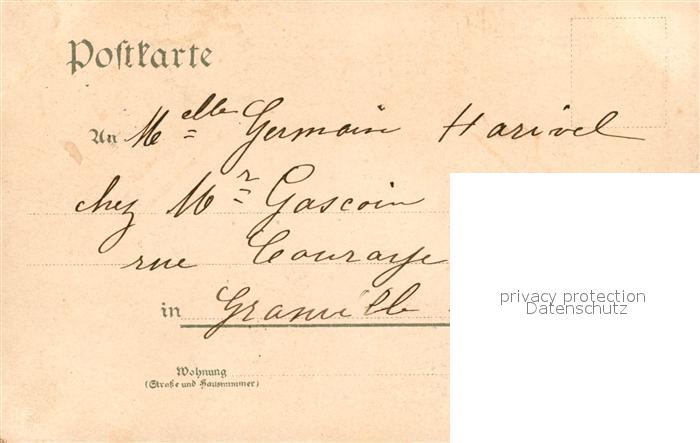 Postkarte
An Melle Germain Harivel
chez Mr Gascoin
rue Couraye
in Granville
privacy protection
Datenschutz
Wohnung
(Straße und Hausnummer)